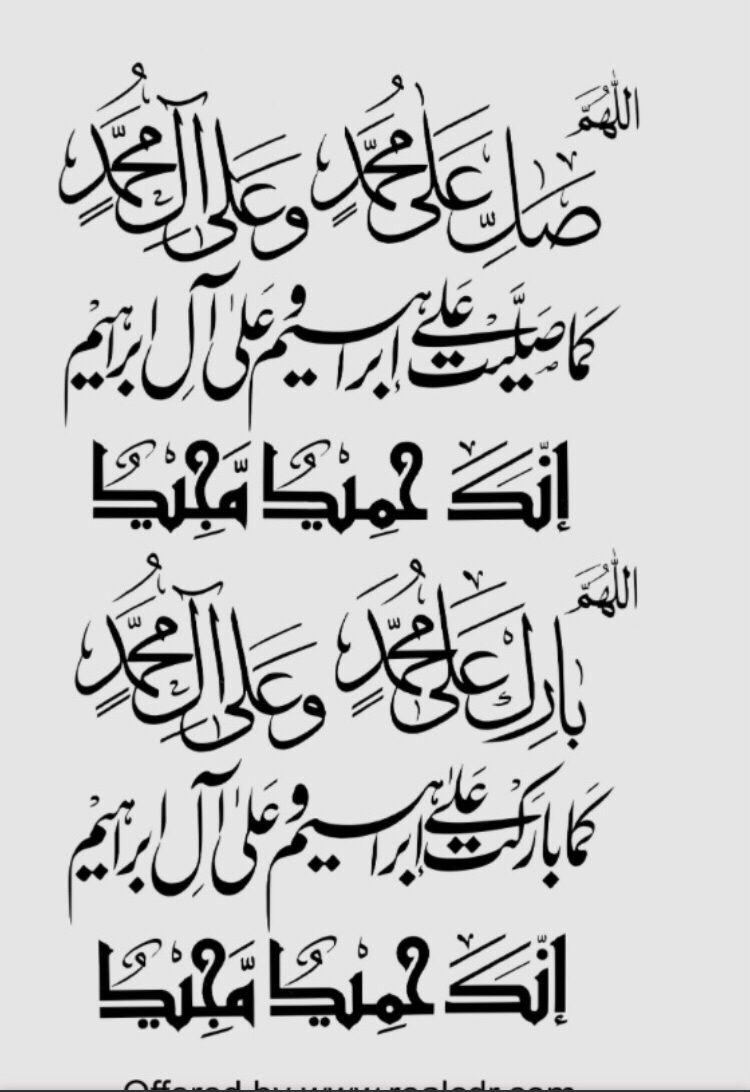 اللّٰهُمَّ
صَلِّ عَلىٰ مُحَمَّدٍ وَعَلىٰ آلِ مُحَمَّدٍ
كَمَا صَلَّيْتَ عَلىٰ إِبْرَاهِيمَ وَعَلىٰ آلِ اِبْرَاهِيْمَ
إِنَّكَ حَمِيْدٌ مَّجِيْدٌ
اللّٰهُمَّ
بَارِكْ عَلىٰ مُحَمَّدٍ وَعَلىٰ آلِ مُحَمَّدٍ
كَمَا بَارَكْتَ عَلىٰ إِبْرَاهِيمَ وَعَلىٰ آلِ اِبْرَاهِيْمَ
إِنَّكَ حَمِيْدٌ مَّجِيْدٌ
Offered by www.realcdr.com